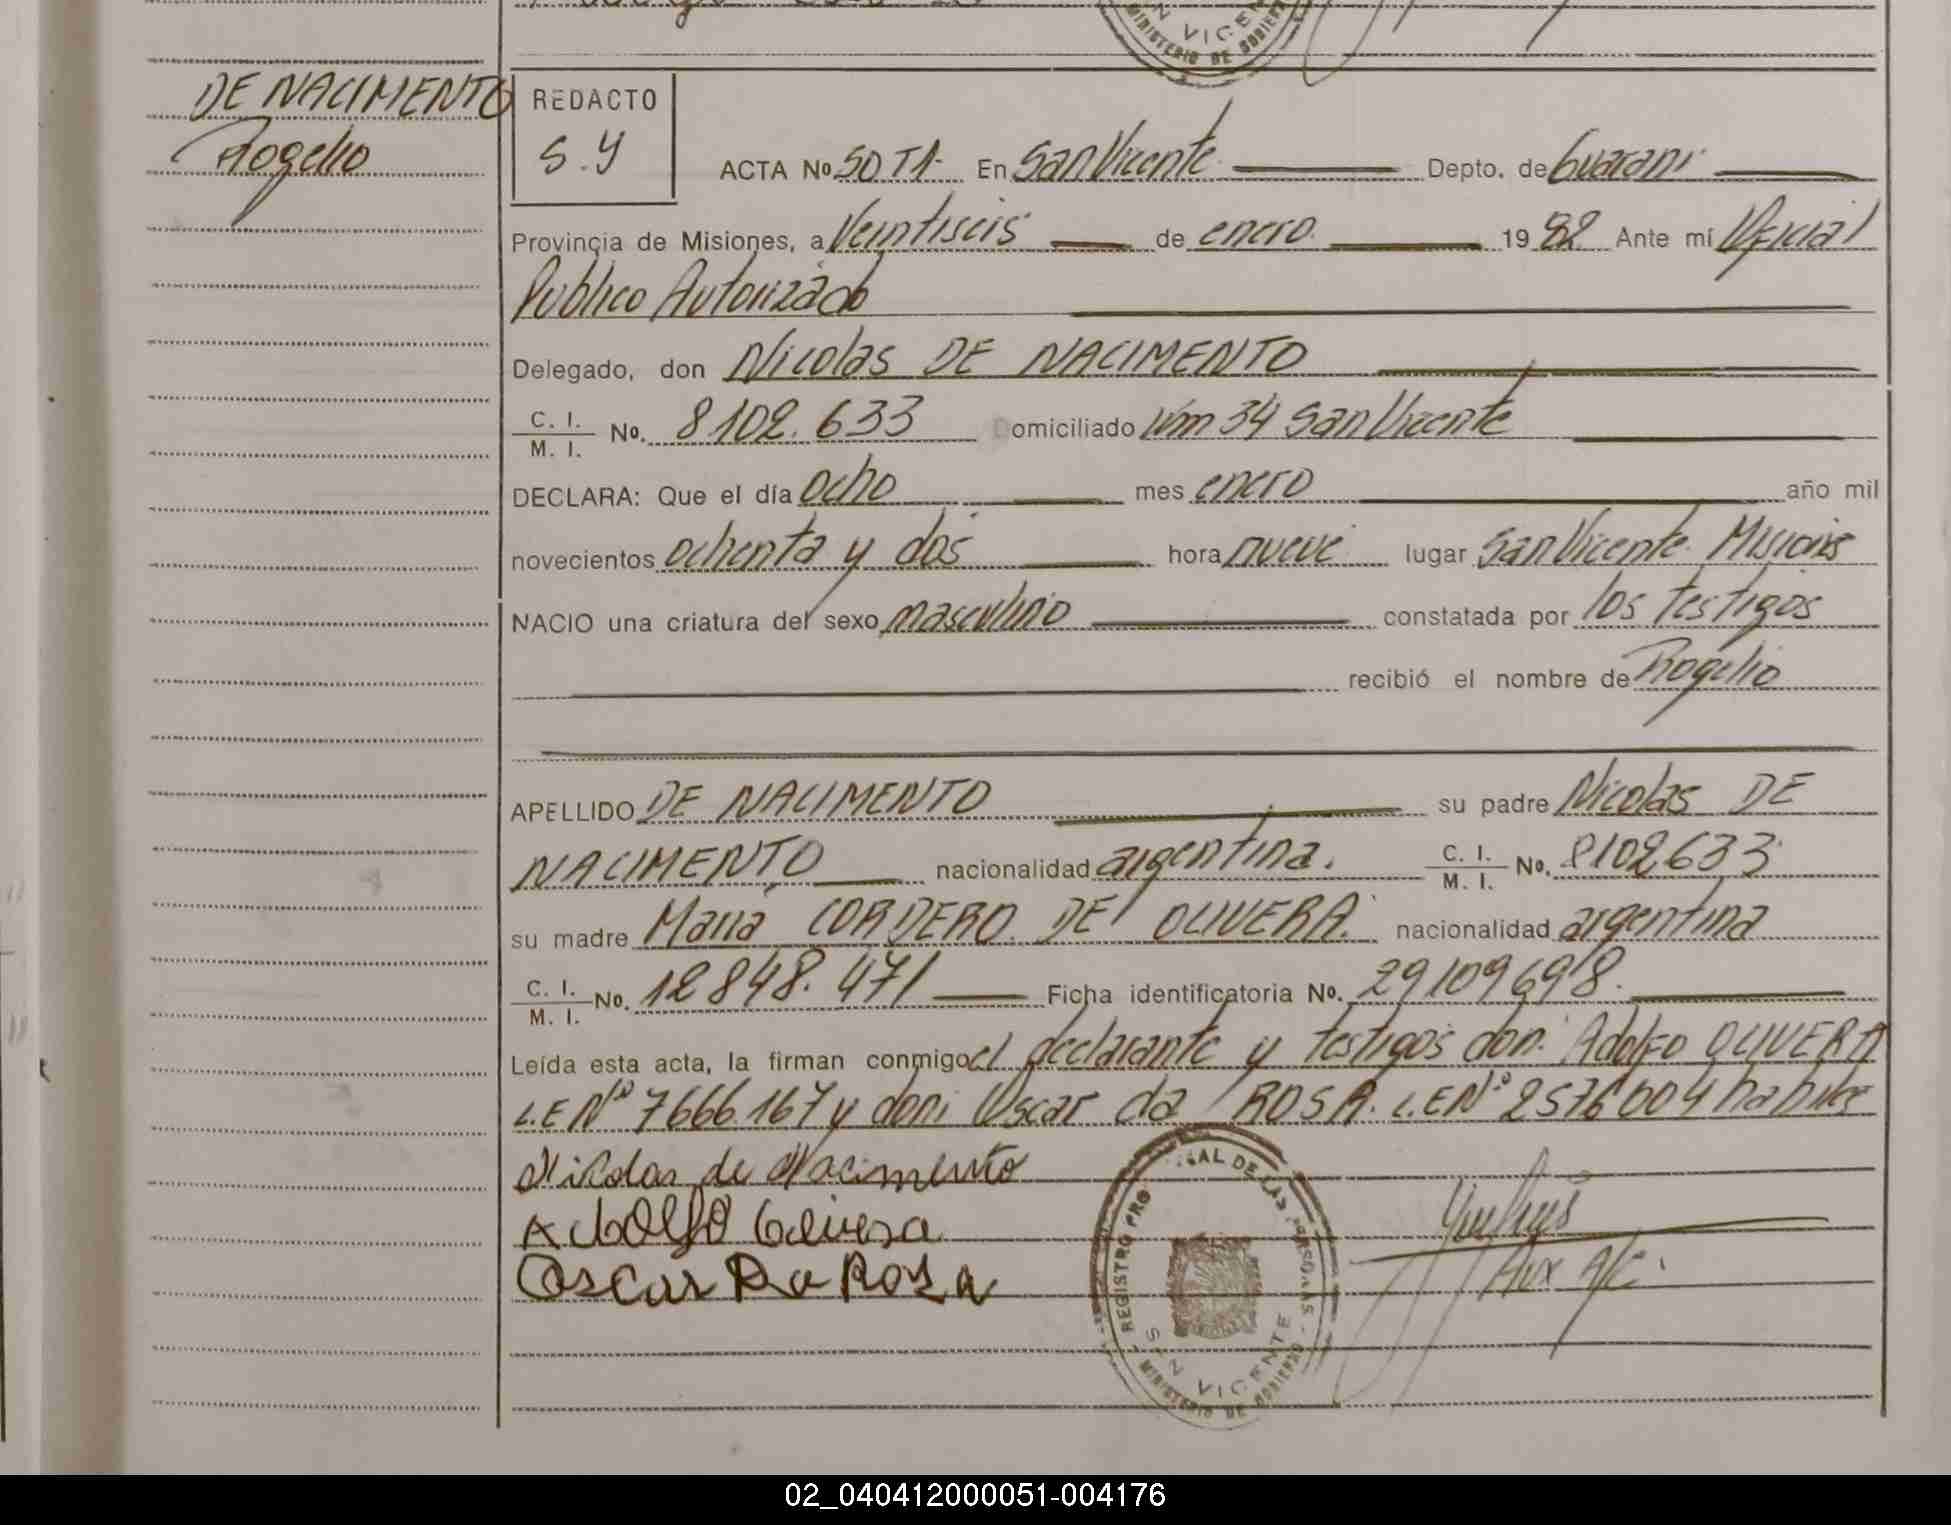 N VICEN
MINISTERIO DE GOBIERN
DE NACIMENTO
Rogelio
REDACTO
S.Y
ACTA No. 50 T1- En San Vicente Depto. de Guarani
Provincia de Misiones, a Veintiseis de enero 19 82 Ante mí Oficial
Publico Autorizado
Delegado, don Nicolas DE NACIMENTO
C. I.
M. I. No. 8102.633 Domiciliado Km 34 San Vicente
DECLARA: Que el día ocho mes enero año mil
novecientos ochenta y dos hora nueve lugar San Vicente Misiones
NACIO una criatura del sexo masculino constatada por los testigos
recibió el nombre de Rogelio
APELLIDO DE NACIMENTO su padre Nicolas DE
NACIMENTO nacionalidad argentina. C. I.
M. I. No. 8102633
su madre Maria CORDERO DE OLIVERA. nacionalidad argentina
C. I.
M. I. No. 12848.471 Ficha identificatoria No. 29109698.
Leída esta acta, la firman conmigo el declarante y testigos don: Adolfo OLIVERA
L.E Nº 7666.167 y don: Oscar da ROSA. L.E Nº 2576004 habiles
Nicolas de Nacimento
Adolfo Olivera
Oscar Da Rosa
Aux A/C.
REGISTRO PRO AL DE LAS PERSONAS -
SAN VICENTE
MINISTERIO DE GOBIERNO
02_040412000051-004176